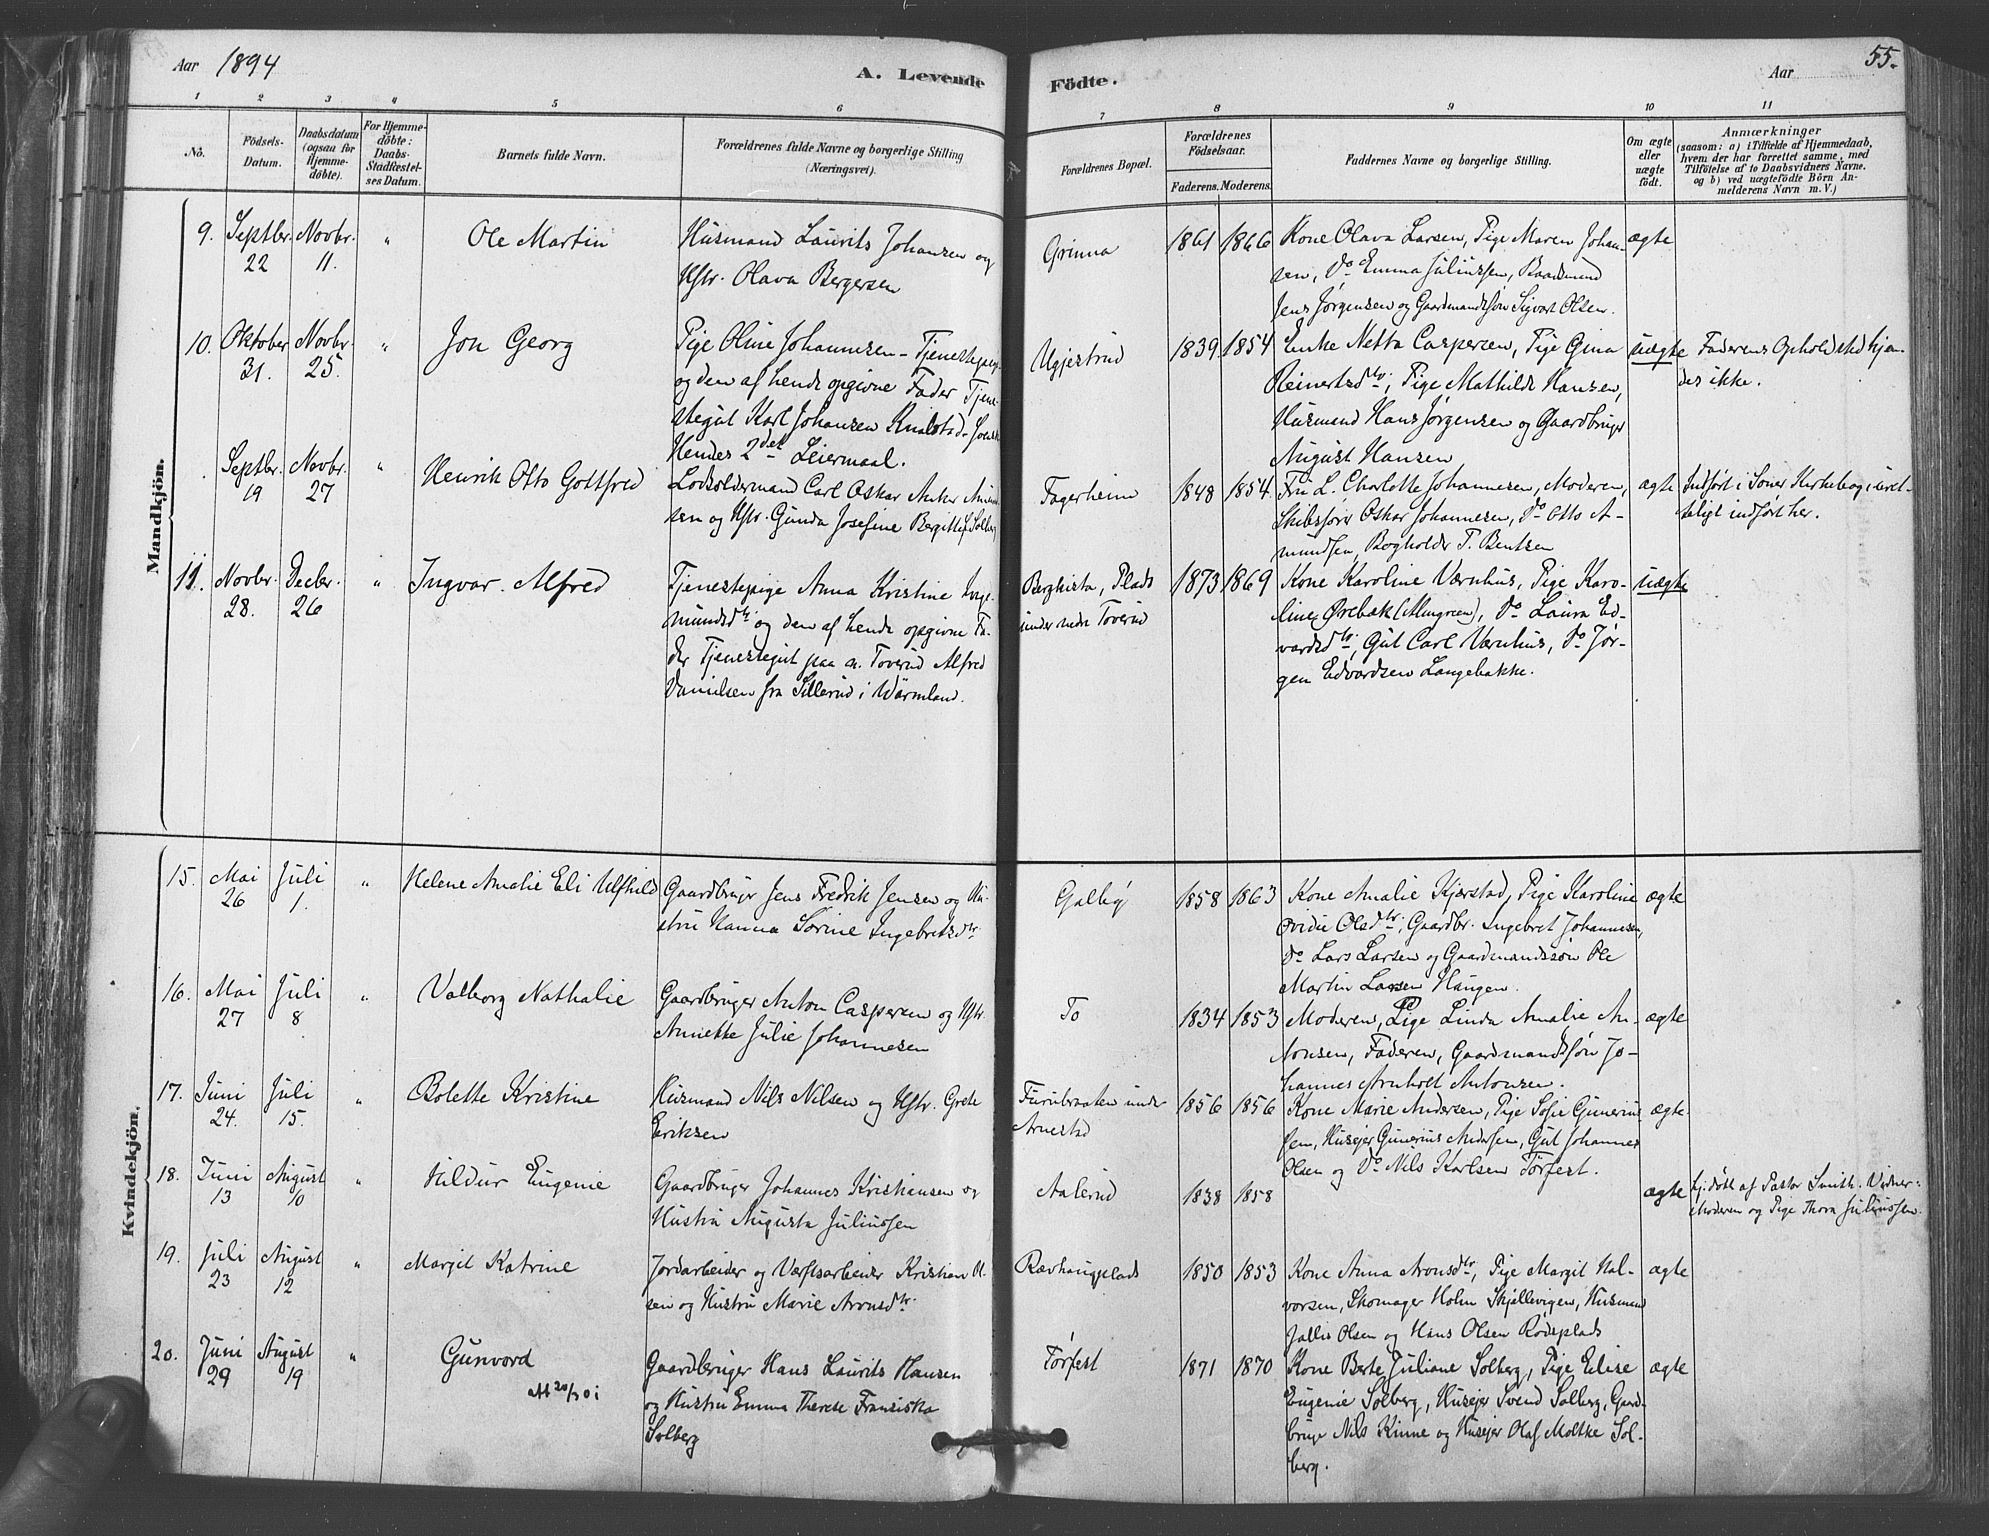 Aar 1894
A. Levende Födte.
Aar
55.
1 2 3 4 5 6 7 8 9 10 11
No.
Födsels-
Datum.
Daabsdatum
(ogsaa for
Hjemme-
döbte).
For Hjemme-
döbte:
Daabs-
Stadfæstel-
ses Datum.
Barnets fulde Navn.
Forældrenes fulde Navne og borgerlige Stilling
(Næringsvei).
Forældrenes Bopæl.
Forældrenes
Födselsaar.
Faderens. Moderens.
Faddernes Navne og borgerlige Stilling.
Om ægte
eller
uægte
födt.
Anmærkninger
(saasom: a) i Tilfælde af Hjemmedaab,
hvem der har forrettet samme, med
Tilföielse af to Daabsvidners Navne.
og b) ved uægtefödte Börn An-
melderens Navn m. V.)
Mandkjön.
9.
Septbr.
22
Novbr.
11.
"
Ole Martin
Husmand Laurits Johansen og
Hstr. Olava Bergersen
Grimma
1861
1866
Kone Olava Larsen, Pige Maren Johan-
sen, Do Emma Juliussen, Baadsmand
Jens Jørgensen og Gaardmandssøn Sigvart Olsen.
ægte
10.
Oktober
31.
Novbr.
25.
"
Jon Georg
Pige Oline Johannesen - Tjenestepige
og den af hende opgivne Fader Tjene-
stegut Karl Johansen Knalstad -
Hendes 2det Leiermaal.
Ugjestrud
1839
1854
Enke Netta Caspersen, Pige Gina
Reinertsdtr, Pige Mathilde Hansen,
Husmand Hans Jørgensen og Gaardbruger
August Hansen
uægte
Faderens Opholdssted kjen-
des ikke.
Septbr.
19
Novbr.
27
"
Henrik Otto Gottfred
Lodsoldermand Carl Oskar Anker Amund-
sen og Hstr. Gunda Josefine Bergitte f. Solberg
Fagerheim
1848
1854.
Fru L. Charlotte Johannesen, Moderen,
Skibsfører Oskar Johannesen, Do Otto A-
mundsen, Bogholder T. Bentsen
ægte
Indført i Soner Kirkebog, uret-
teligt indført her.
11.
Novbr.
28.
Decbr.
26
"
Ingvar Alfred
Tjenestepige Anna Kristine Inge-
mundsdtr og den af hende opgivne Fa-
der Tjenestegut paa n. Toverud Alfred
Danielsen fra Sillerud i Wärmland.
Berghista, Plads
under nedre Toverud
1873
1869
Kone Karoline Værnhus, Pige Karo-
line Ørebak (Almgreen), Do Laura Ed-
vardsdtr, Gut Carl Værnhus, Do Jør-
gen Edvardsen Langebakke.
uægte
Kvindekjön.
15.
Mai
26
Juli
1.
"
Helene Amalie Eli Ulfhild
Gaardbruger Jens Fredrik Jensen og Hu-
stru Hanna Sørine Ingebretsdtr
Galby
1858
1863
Kone Amalie Kjærstad, Pige Karoline
Ovidie Olsdtr, Gaardbr. Ingebret Johannesen,
Do Lars Larsen og Gaardmandssøn Ole
Martin Larsen Haugen.
ægte
16.
Mai
27
Juli
8
"
Valborg Nathalie
Gaardbruger Anton Caspersen og Hstr.
Annette Julie Johannesen
To
1834
1853
Moderen, Pige Linda Amalie An-
tonsen, Faderen, Gaardmandssøn Jo-
hannes Arnholt Antonsen.
ægte
17.
Juni
24.
Juli
15.
"
Bolette Kristine
Husmand Nils Nilsen og Hstr. Grete
Eriksen
Furubraaten under
Arnestad
1856
1856
Kone Marie Andersen, Pige Sofie Gunerius-
sen, Husejer Gunerius Andersen, Gut Johannes
Olsen og Do Nils Karlsen Tørfest.
ægte
18.
Juni
13
August
10
"
Hildur Eugenie
Gaardbruger Johannes Kristiansen og
Hustru Augusta Juliussen
Aalerud
1838
1858
ægte
Hj.døbt af Pastor Smith. Vidner:
Moderen og Pige Thora Juliussen.
19.
Juli
23
August
12
"
Margit Katrine
Jordarbeider og Værftsarbeider Kristian Ol-
sen og Hustru Marie Aronsdtr
Ravhaugplads
1850
1853
Kone Anna Aronsdtr, Pige Margit Hal-
vorsen, Skomager Holm Skjellevigen, Husmand
Olsen og Hans Olsen Rødsplads
ægte
20.
Juni
29
August
19
"
Gunvord
Gaardbruger Hans Laurits Hansen
og Hustru Emma Therese Fransiska
Solberg
Tørfest
1871
1870
Kone Berte Juliane Solberg, Pige Elise
Eugenie Solberg, Husejer Svend Solberg, Gaard-
bruger Nils Kinne og Husejer Olaf Moltke Sol-
berg.
ægte